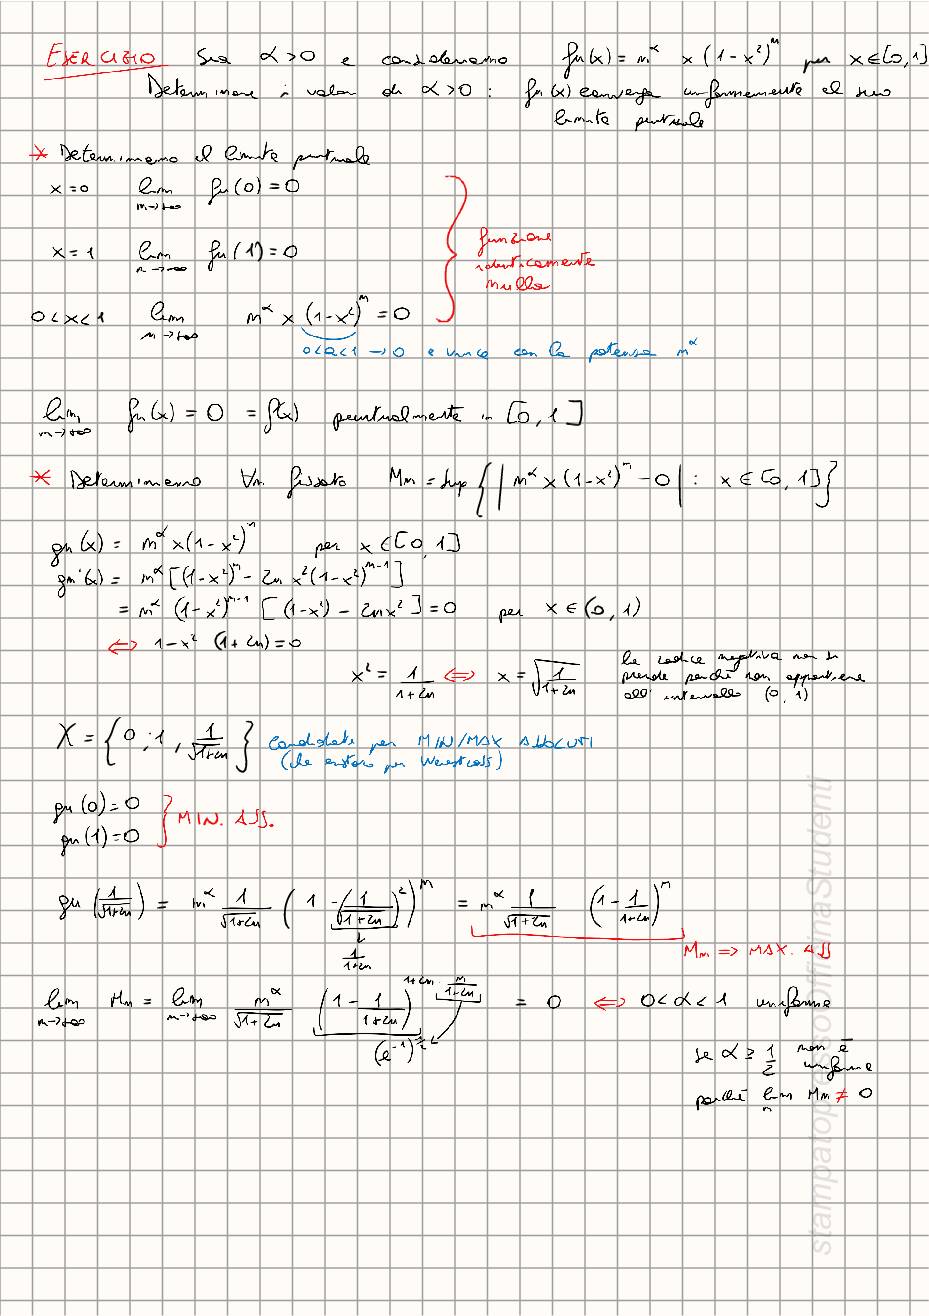 ESERCIZIO Sia α>0 e consideriamo fn(x) = n^α x (1-x²)^n per x∈[0,1]
Determinare i valori di α>0 : fn(x) converga uniformemente al suo
limite puntuale
* Determiniamo il limite puntuale
x=0 lim n→+∞ fn(0) = 0
x=1 lim n→+∞ fn(1) = 0
funzione
identicamente
nulla
0<x<1 lim n→+∞ n^α x (1-x²)^n = 0
0<a<1 → 0 e vince con la potenza n^α
lim n→+∞ fn(x) = 0 = f(x) puntualmente in [0,1]
* Determiniamo ∀n fissato Mn = sup { | n^α x (1-x²)^n - 0 | : x∈[0,1] }
gn(x) = n^α x (1-x²)^n per x∈[0,1]
gn'(x) = n^α [(1-x²)^n - 2n x² (1-x²)^{n-1}]
= n^α (1-x²)^{n-1} [(1-x²) - 2nx²] = 0 per x∈(0,1)
⇔ 1-x² (1+2n) = 0
x² = 1/(1+2n) ⇔ x = √(1/(1+2n))
la radice negativa non si
prende perché non appartiene
all' intervallo (0,1)
X = { 0 ; 1 , 1/√(1+2n) } candidati per MIN/MAX ASSOLUTI
(che esistono per Weierstrass)
gn(0) = 0
gn(1) = 0
} MIN. ASS.
gn (1/√(1+2n)) = n^α 1/√(1+2n) (1 - (1/√(1+2n))²)^n = n^α 1/√(1+2n) (1 - 1/(1+2n))^n
1/(1+2n)
Mn ⇒ MAX. ASS
lim n→+∞ Mn = lim n→+∞ n^α/√(1+2n) (1 - 1/(1+2n))^{1+2n · n/(1+2n)} = 0 ⇔ 0<α<1 uniforme
(e^{-1})^{1/2}
se α ≥ 1/2 non è
uniforme
perché lim n Mn ≠ 0
stampatopressoofficinaStudenti